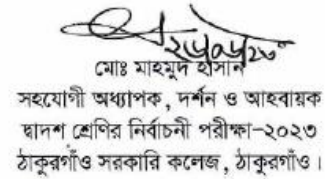 ২৮/০৮/২৩
মোঃ মাহমুদ হাসান
সহযোগী অধ্যাপক, দর্শন ও আহবায়ক
দ্বাদশ শ্রেণির নির্বাচনী পরীক্ষা-২০২৩
ঠাকুরগাঁও সরকারি কলেজ, ঠাকুরগাঁও।